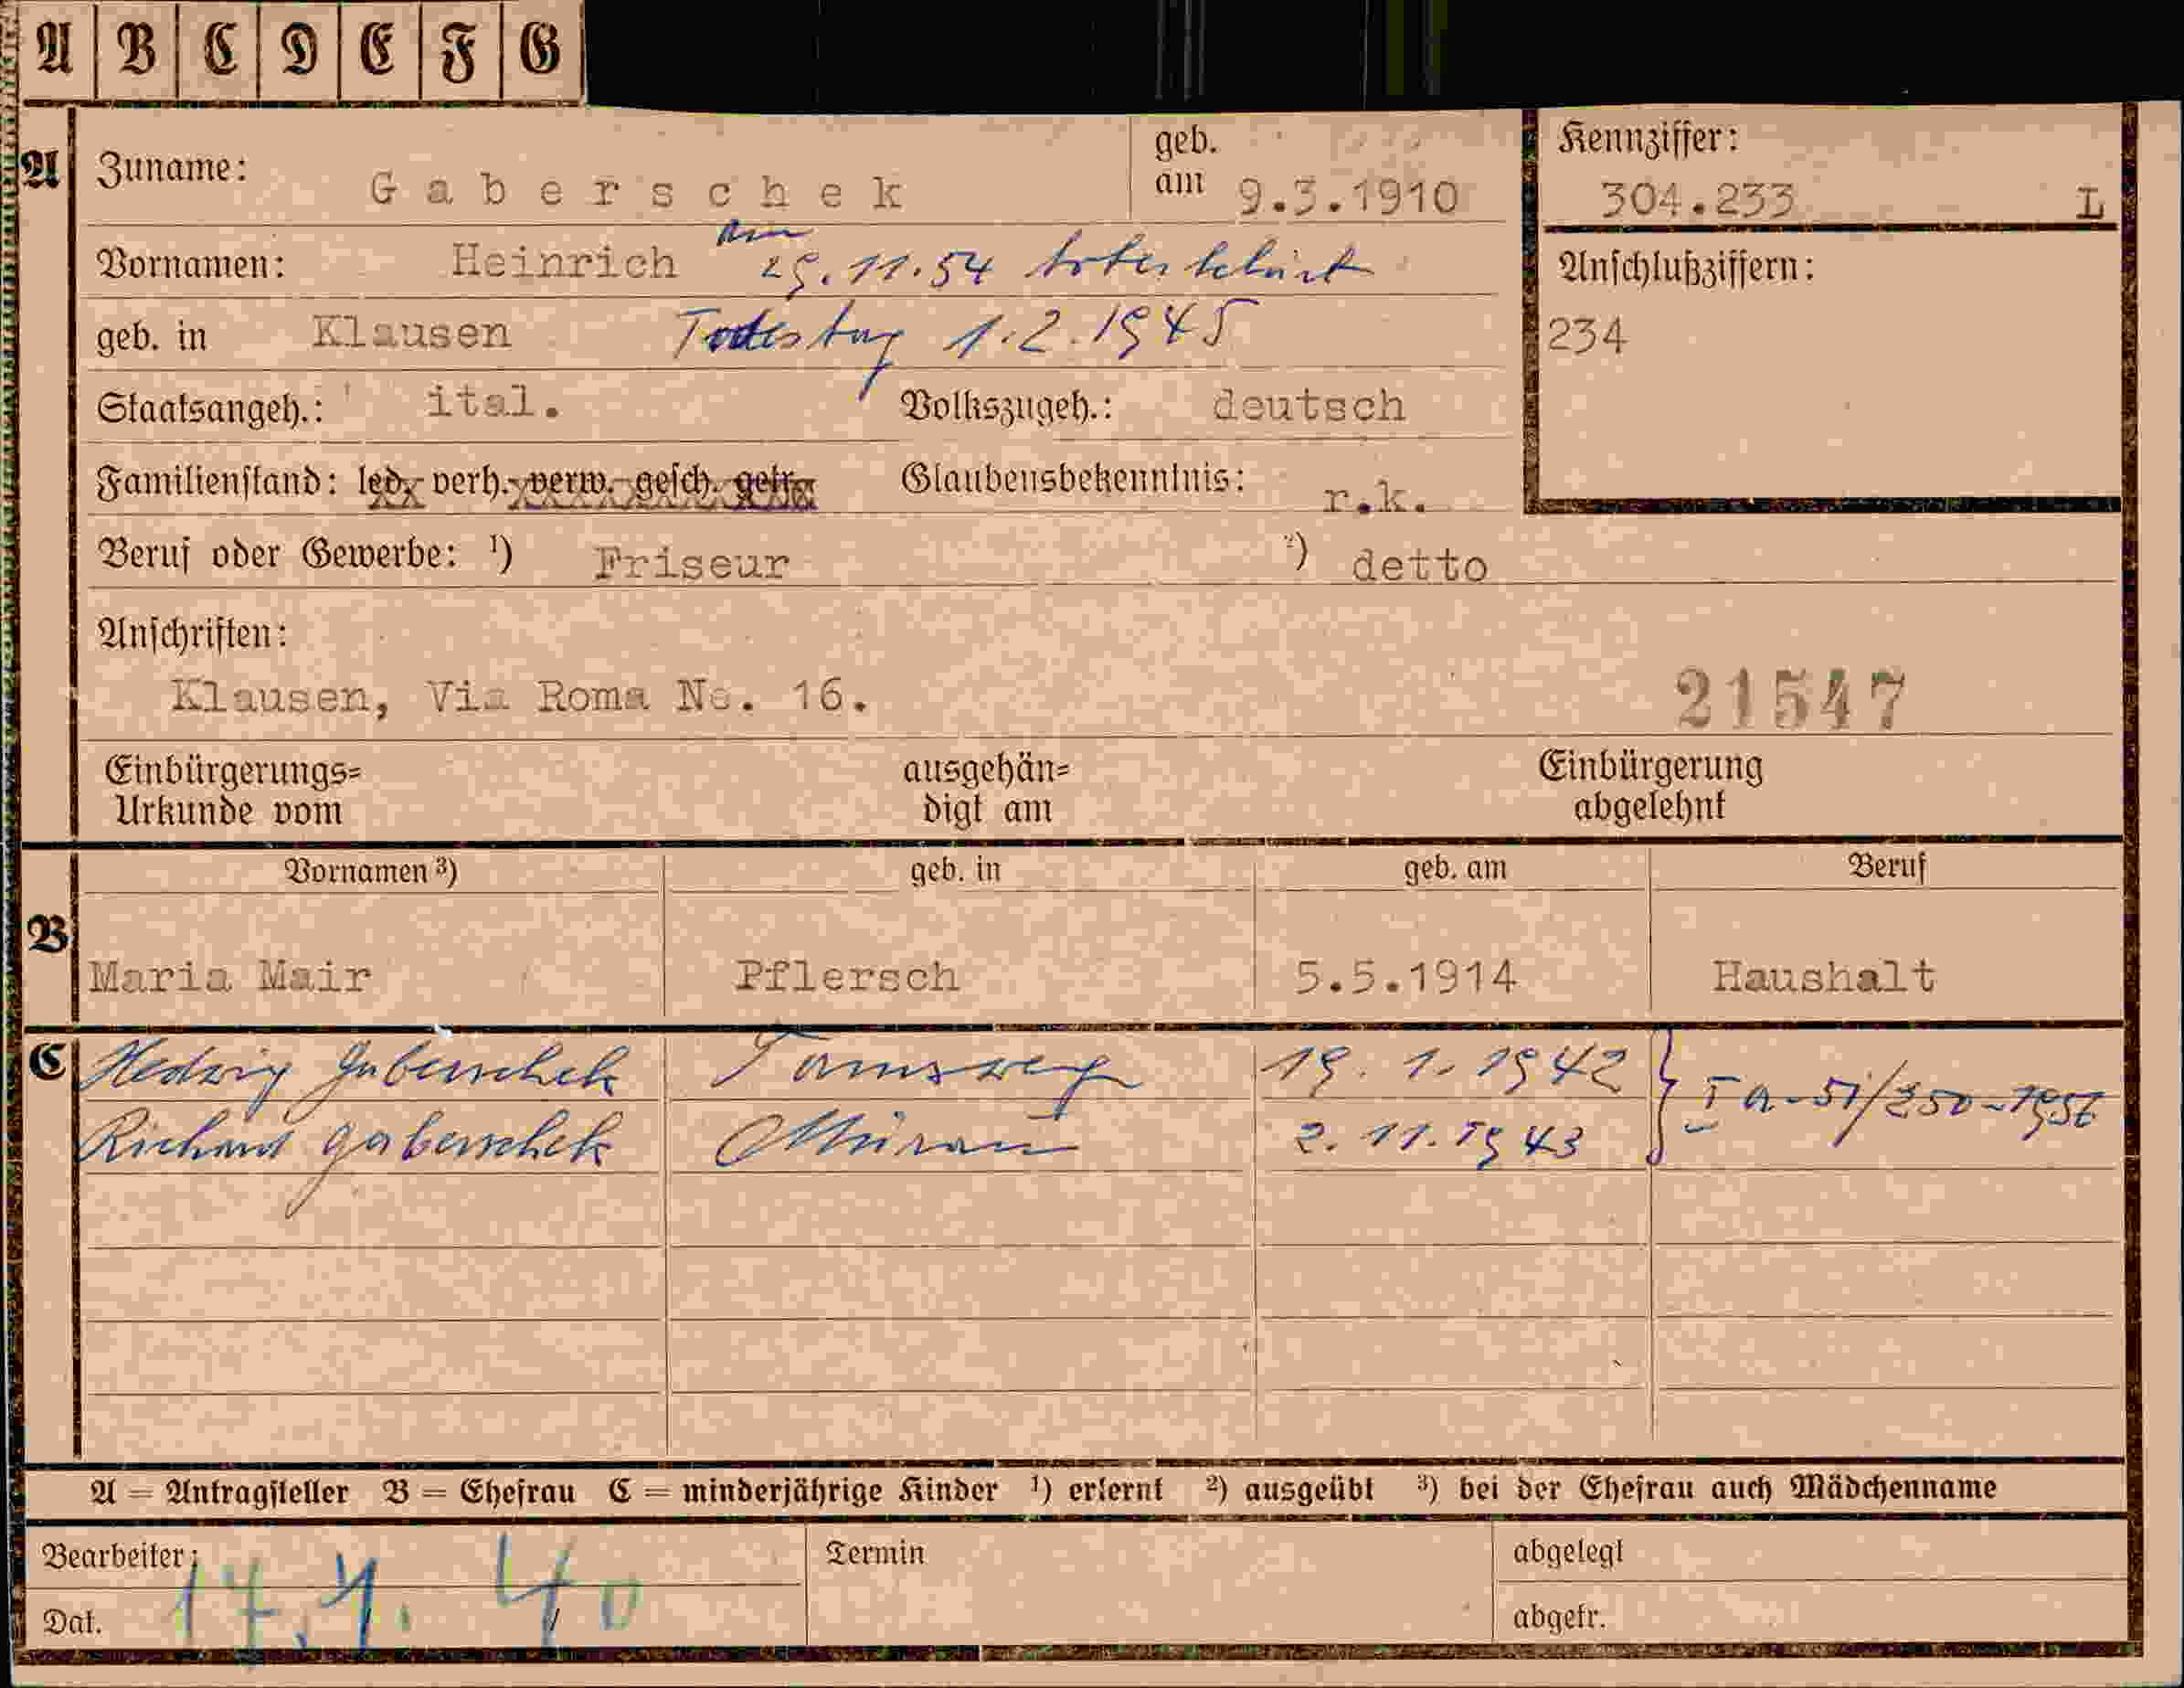 A B C D E F G
A
Zuname: Gaberschek geb. am 9.3.1910
Kennziffer: 304.233 L
Vornamen: Heinrich am 25.11.54 toterklärt
Anschlußziffern:
234
geb. in Klausen Todestag 1.2.1945
Staatsangeh.: ital. Volkszugeh.: deutsch
Familienstand: led. verh. verw. gesch. getr. Glaubensbekenntnis: r.k.
Beruf oder Gewerbe: 1) Friseur 2) detto
Anschriften:
Klausen, Via Roma No. 16. 21547
Einbürgerungs=
Urkunde vom
ausgehän=
digt am
Einbürgerung
abgelehnt
Vornamen 3) geb. in geb. am Beruf
B
Maria Mair Pflersch 5.5.1914 Haushalt
C Hedwig Gaberschek Tamsweg 19.1.1942
Richard Gaberschek Murau 2.11.1943
} I a-51/350-1956
A = Antragsteller B = Ehefrau C = minderjährige Kinder 1) erlernt 2) ausgeübt 3) bei der Ehefrau auch Mädchenname
Bearbeiter: Termin abgelegt
Dat. abgetr.